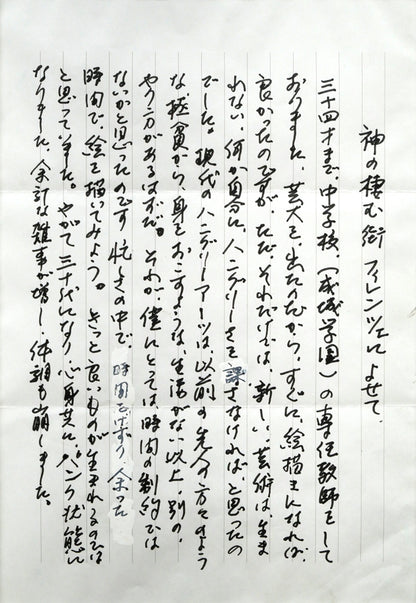 神の棲む街フィレンツェによせて。
三十四才まで、中学校、（成城学園）の専任教師をして
おりました、芸大を、出たのだから、すぐに、絵描きになれば、
良かったのですが、ただ、それだけでは、新しい、芸術は、生ま
れない、何か自分に、ハングリーさを課さなければ、と思ったの
でした。現代のハングリーアーツは、以前の先人の方々のよう
な、極貧から、身をおこすような、生活がない以上、別の、
やり方があるはずだ。それが、僕にとっては、時間の制約では
ないかと思ったのです 忙しさの中で、時間をけずり 余った
時間で、絵を描いてみよう。きっと良いものが生まれるのでは
と思っていました。やがて三十代になり心身共に、パンク状態に
なりました、余計な雑事が増し、体調も崩しました。